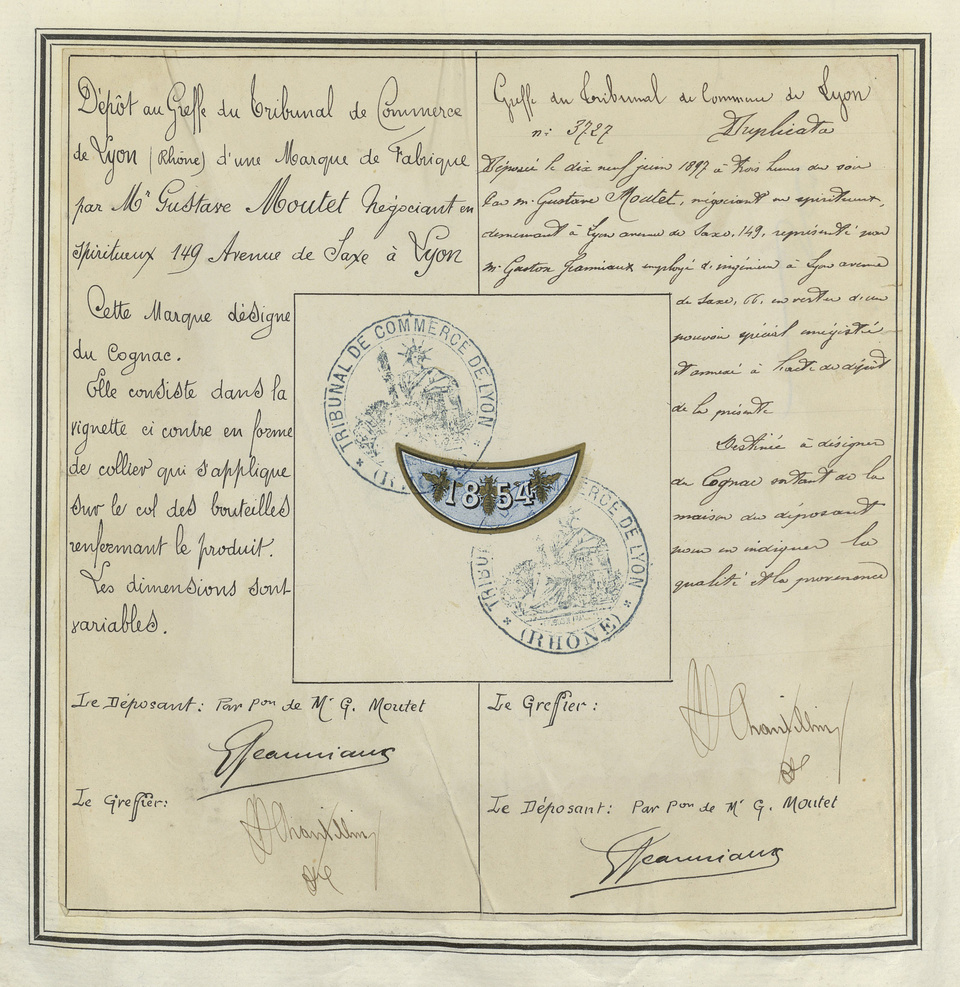 Dépôt au Greffe du Tribunal de Commerce
de Lyon (Rhône) d'une Marque de Fabrique
par Mr Gustave Moutet Négociant en
spiritueux 149 Avenue de Saxe à Lyon
Cette Marque désigne
du Cognac.
Elle consiste dans la
vignette ci contre en forme
de collier qui s'applique
sur le col des bouteilles
renfermant le produit.
Les dimensions sont
variables.
Le Déposant: Par pon de Mr G. Moutet
Jeanniaux
Le Greffier:
Greffe du Tribunal de Commerce de Lyon
n: 3727 Duplicata
Déposée le dix neuf juin 1897 à trois heures du soir
par m. Gustave Moutet, négociant en spiritueux,
demeurant à Lyon avenue de Saxe, 149, représenté par
m. Gaston Jeanniaux employé d'ingénieur à Lyon avenue
de Saxe, 66, en vertu d'un
pouvoir spécial enregistré
et annexé à l'acte de dépôt
de la présente
Destinée à désigner
du Cognac sortant de la
maison du déposant
pour en indiquer la
qualité et la provenance
TRIBUNAL DE COMMERCE DE LYON
1854
TRIBU ERCE DE LYON
(RHÔNE)
Le Greffier:
Le Déposant: Par pon de Mr G. Moutet
Jeanniaux